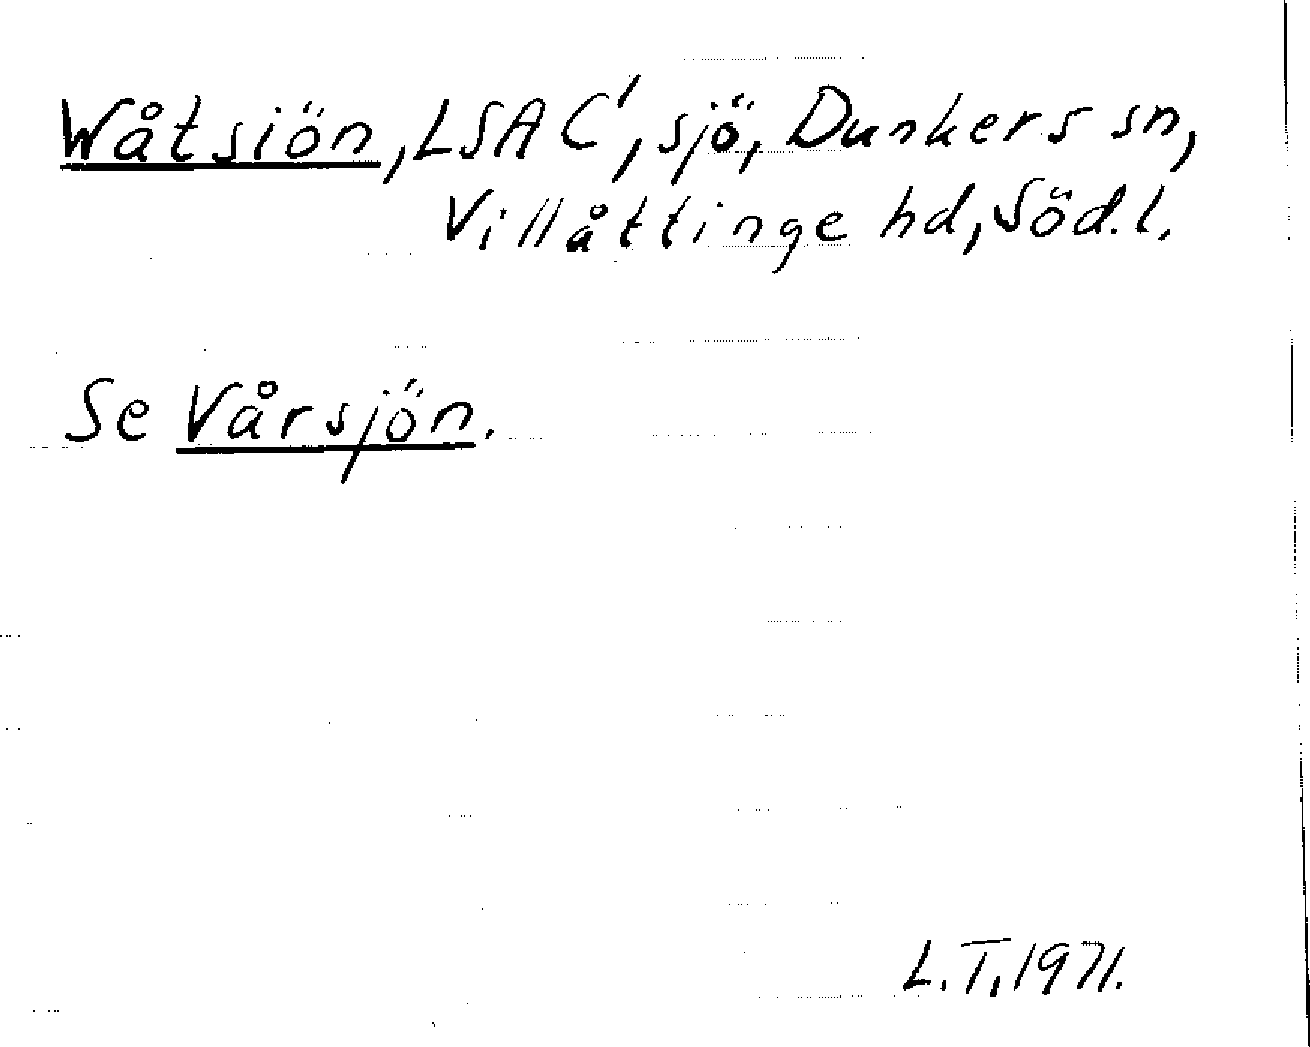 Wåtsiön, LSA C', sjö, Dunkers sn,
Villåttinge hd, Söd.l.
Se Vårsjön.
L.T. 1971.